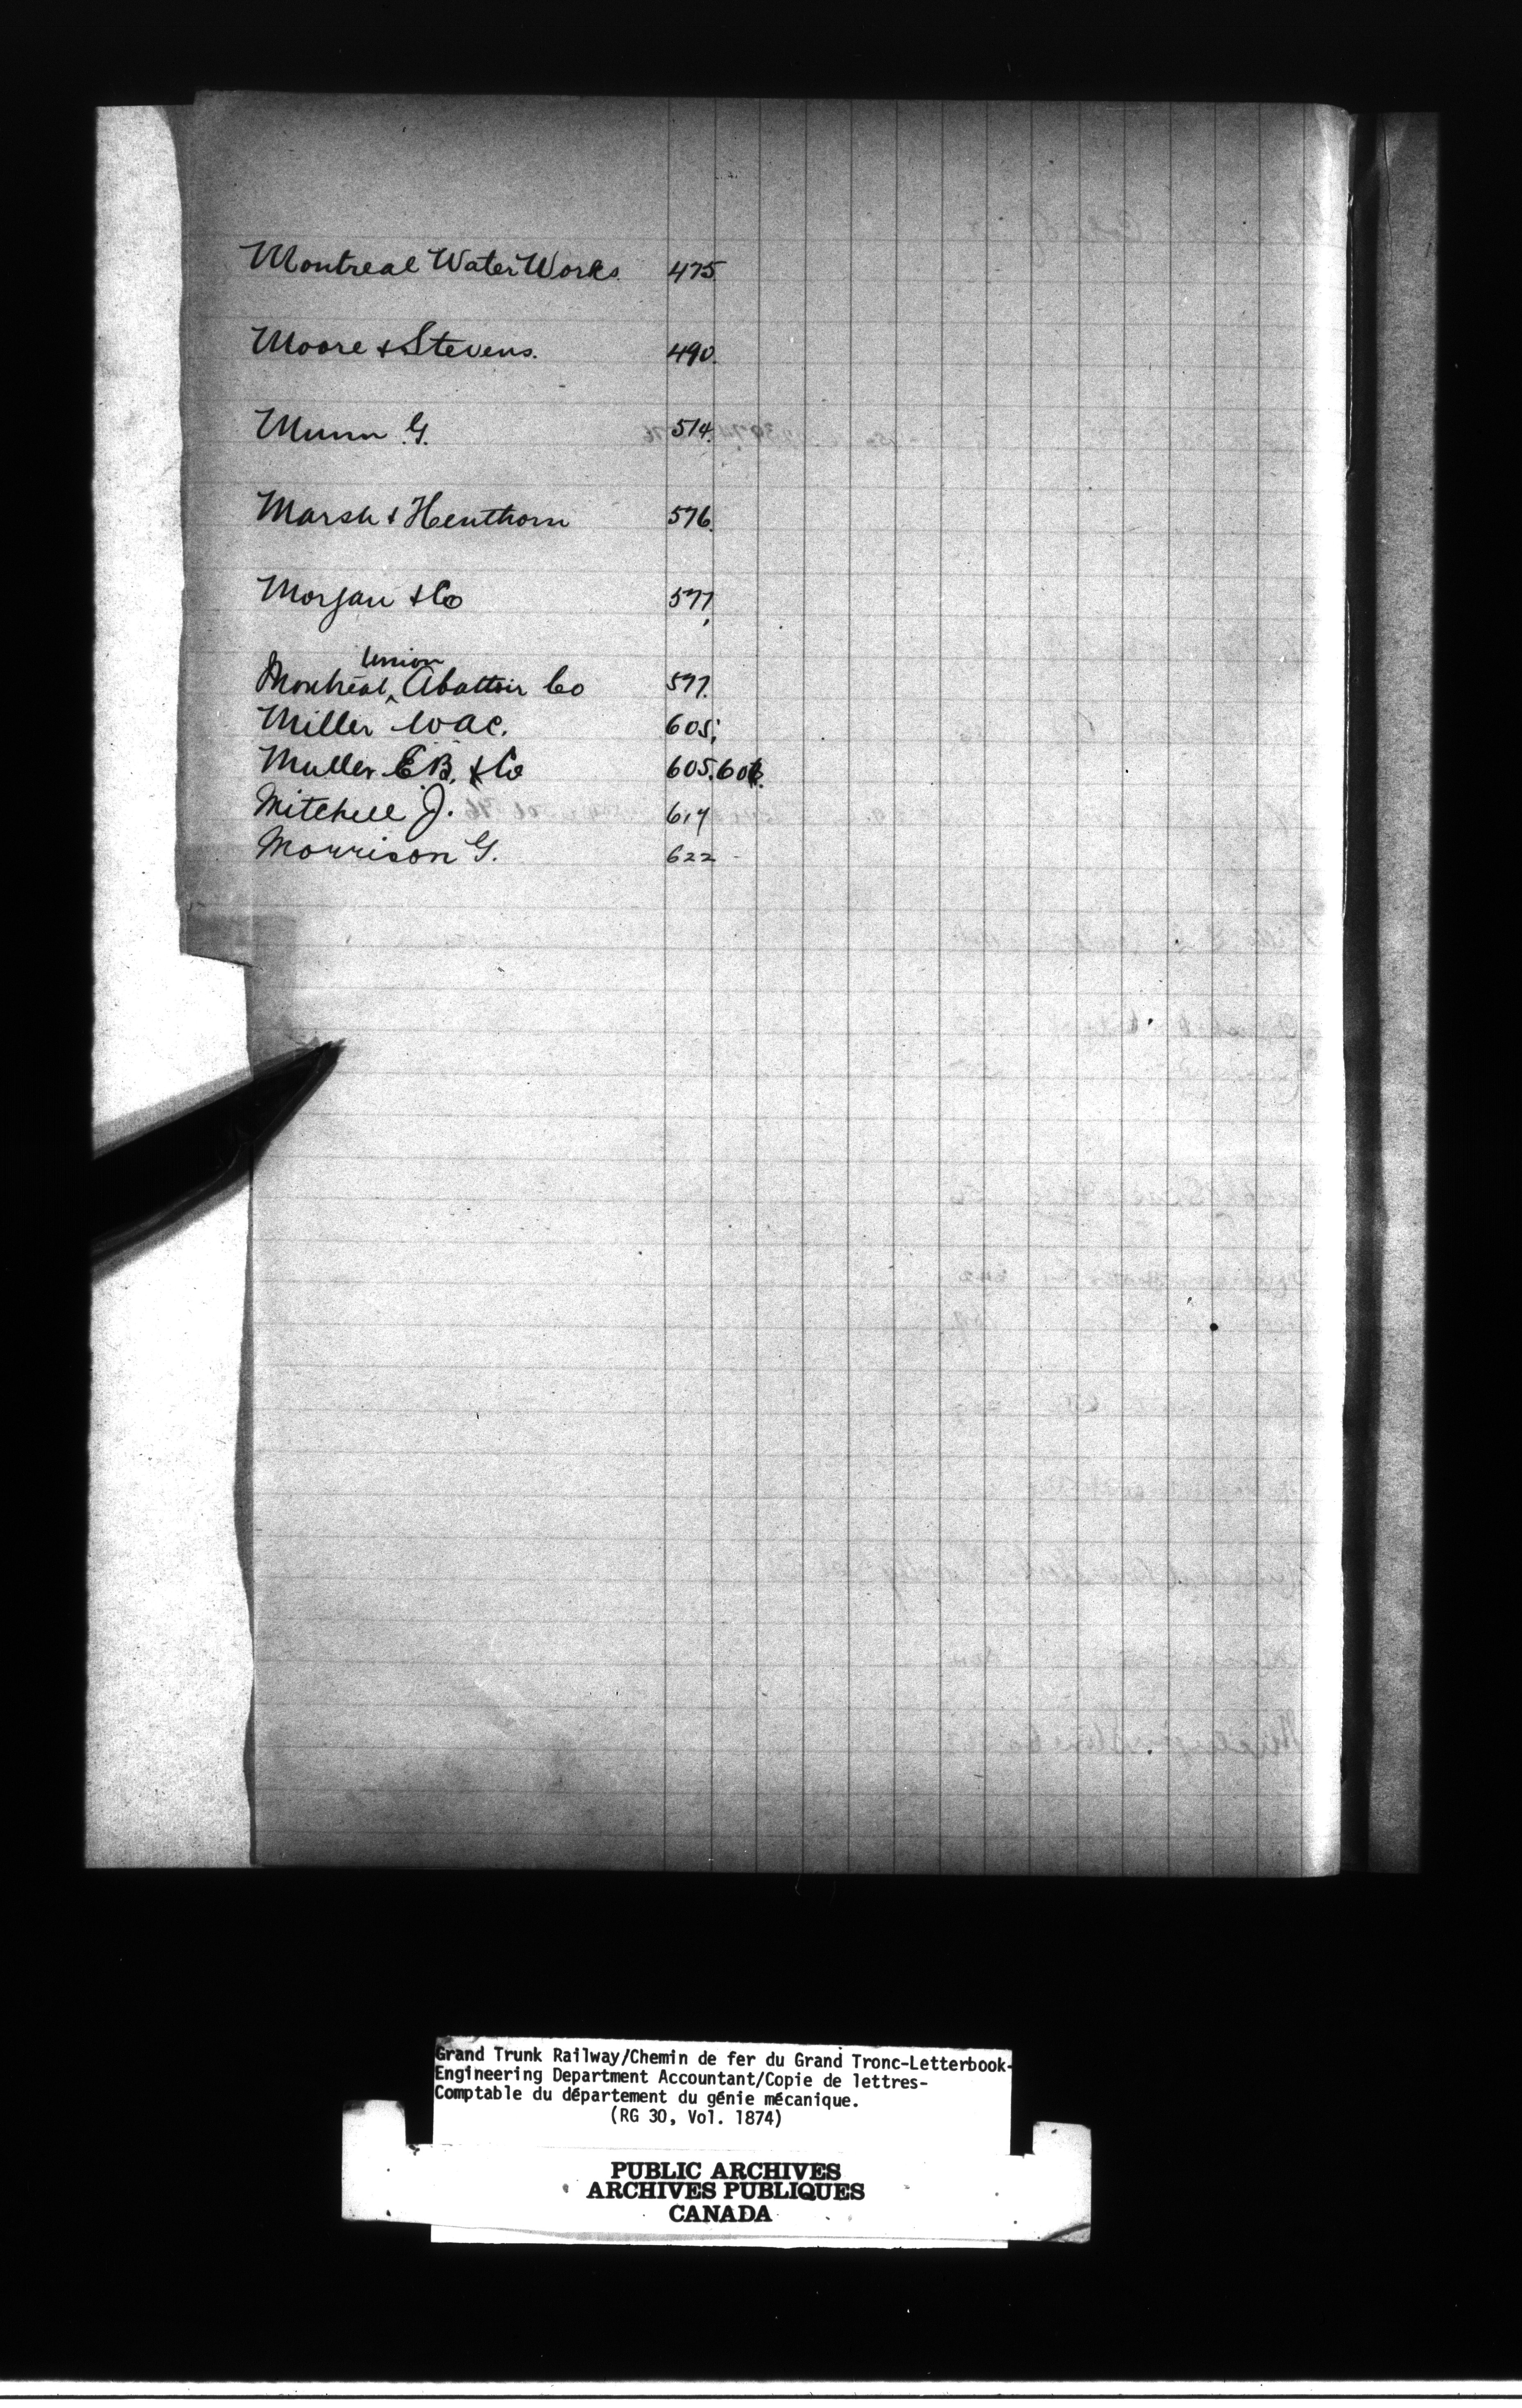 Montreal Water Works 475.
Moore & Stevens. 490.
Munn G. 514.
Marsh & Henthorn 576.
Morgan & Co 577.
Union
Montreal ^ Abattoir Co 577.
Miller W A C. 605;
Muller E.B. & Co 605. 606.
Mitchell J. 617
Morrison G. 622
Grand Trunk Railway/Chemin de fer du Grand Tronc-Letterbook-
Engineering Department Accountant/Copie de lettres-
Comptable du département du génie mécanique.
(RG 30, Vol. 1874)
PUBLIC ARCHIVES
ARCHIVES PUBLIQUES
CANADA